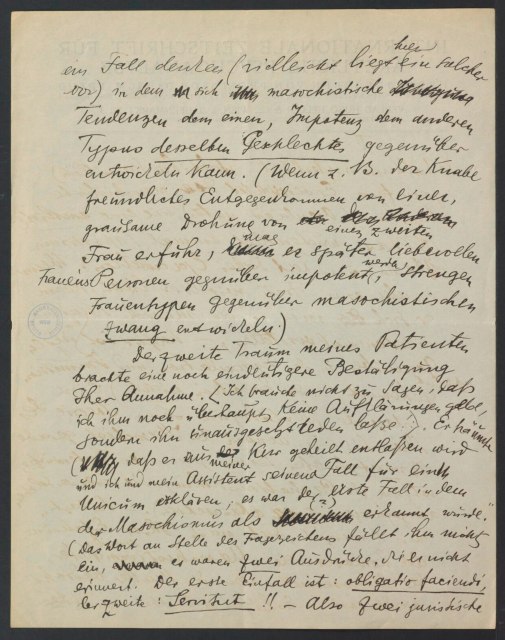 hier
ein Fall denken (vielleicht liegt ein solcher
vor) in dem sich masochistische
Tendenzen dem einen, Impotenz dem anderen
Typus desselben Geschlechtes gegenüber
entwickeln kann. (Wenn z. B. der Knabe
freundliches Entgegenkommen von einer,
grausame Drohung von
einer zweiten
Frau erfuhr, mag er später liebevollen
Personen gegenüber impotent werden, strengen
Frauentypen gegenüber masochistischen
Zwang entwickeln.)
Der zweite Traum meines Patienten
brachte eine noch eindeutigere Bestätigung
Ihrer Annahme. (Ich brauche nicht zu sagen, daß
ich ihm noch überhaupt keine Aufklärungen gebe,
sondern ihn unausgesetzt reden laße.) Er träumte
daß er aus der Kur geheilt entlaßen wird
und ich und mein Assistent seinen Fall für ein
Unicum erklären, es war der erste Fall in dem
der Masochismus als (?) erkannt wurde."
(Das Wort an Stelle des Fragezeichens fällt ihm nicht
ein, es waren zwei Ausdrücke, die er nicht
erinnert. Der erste Einfall ist: obligatio faciendi,
der zweite: Servitut!! – Also zwei juristische